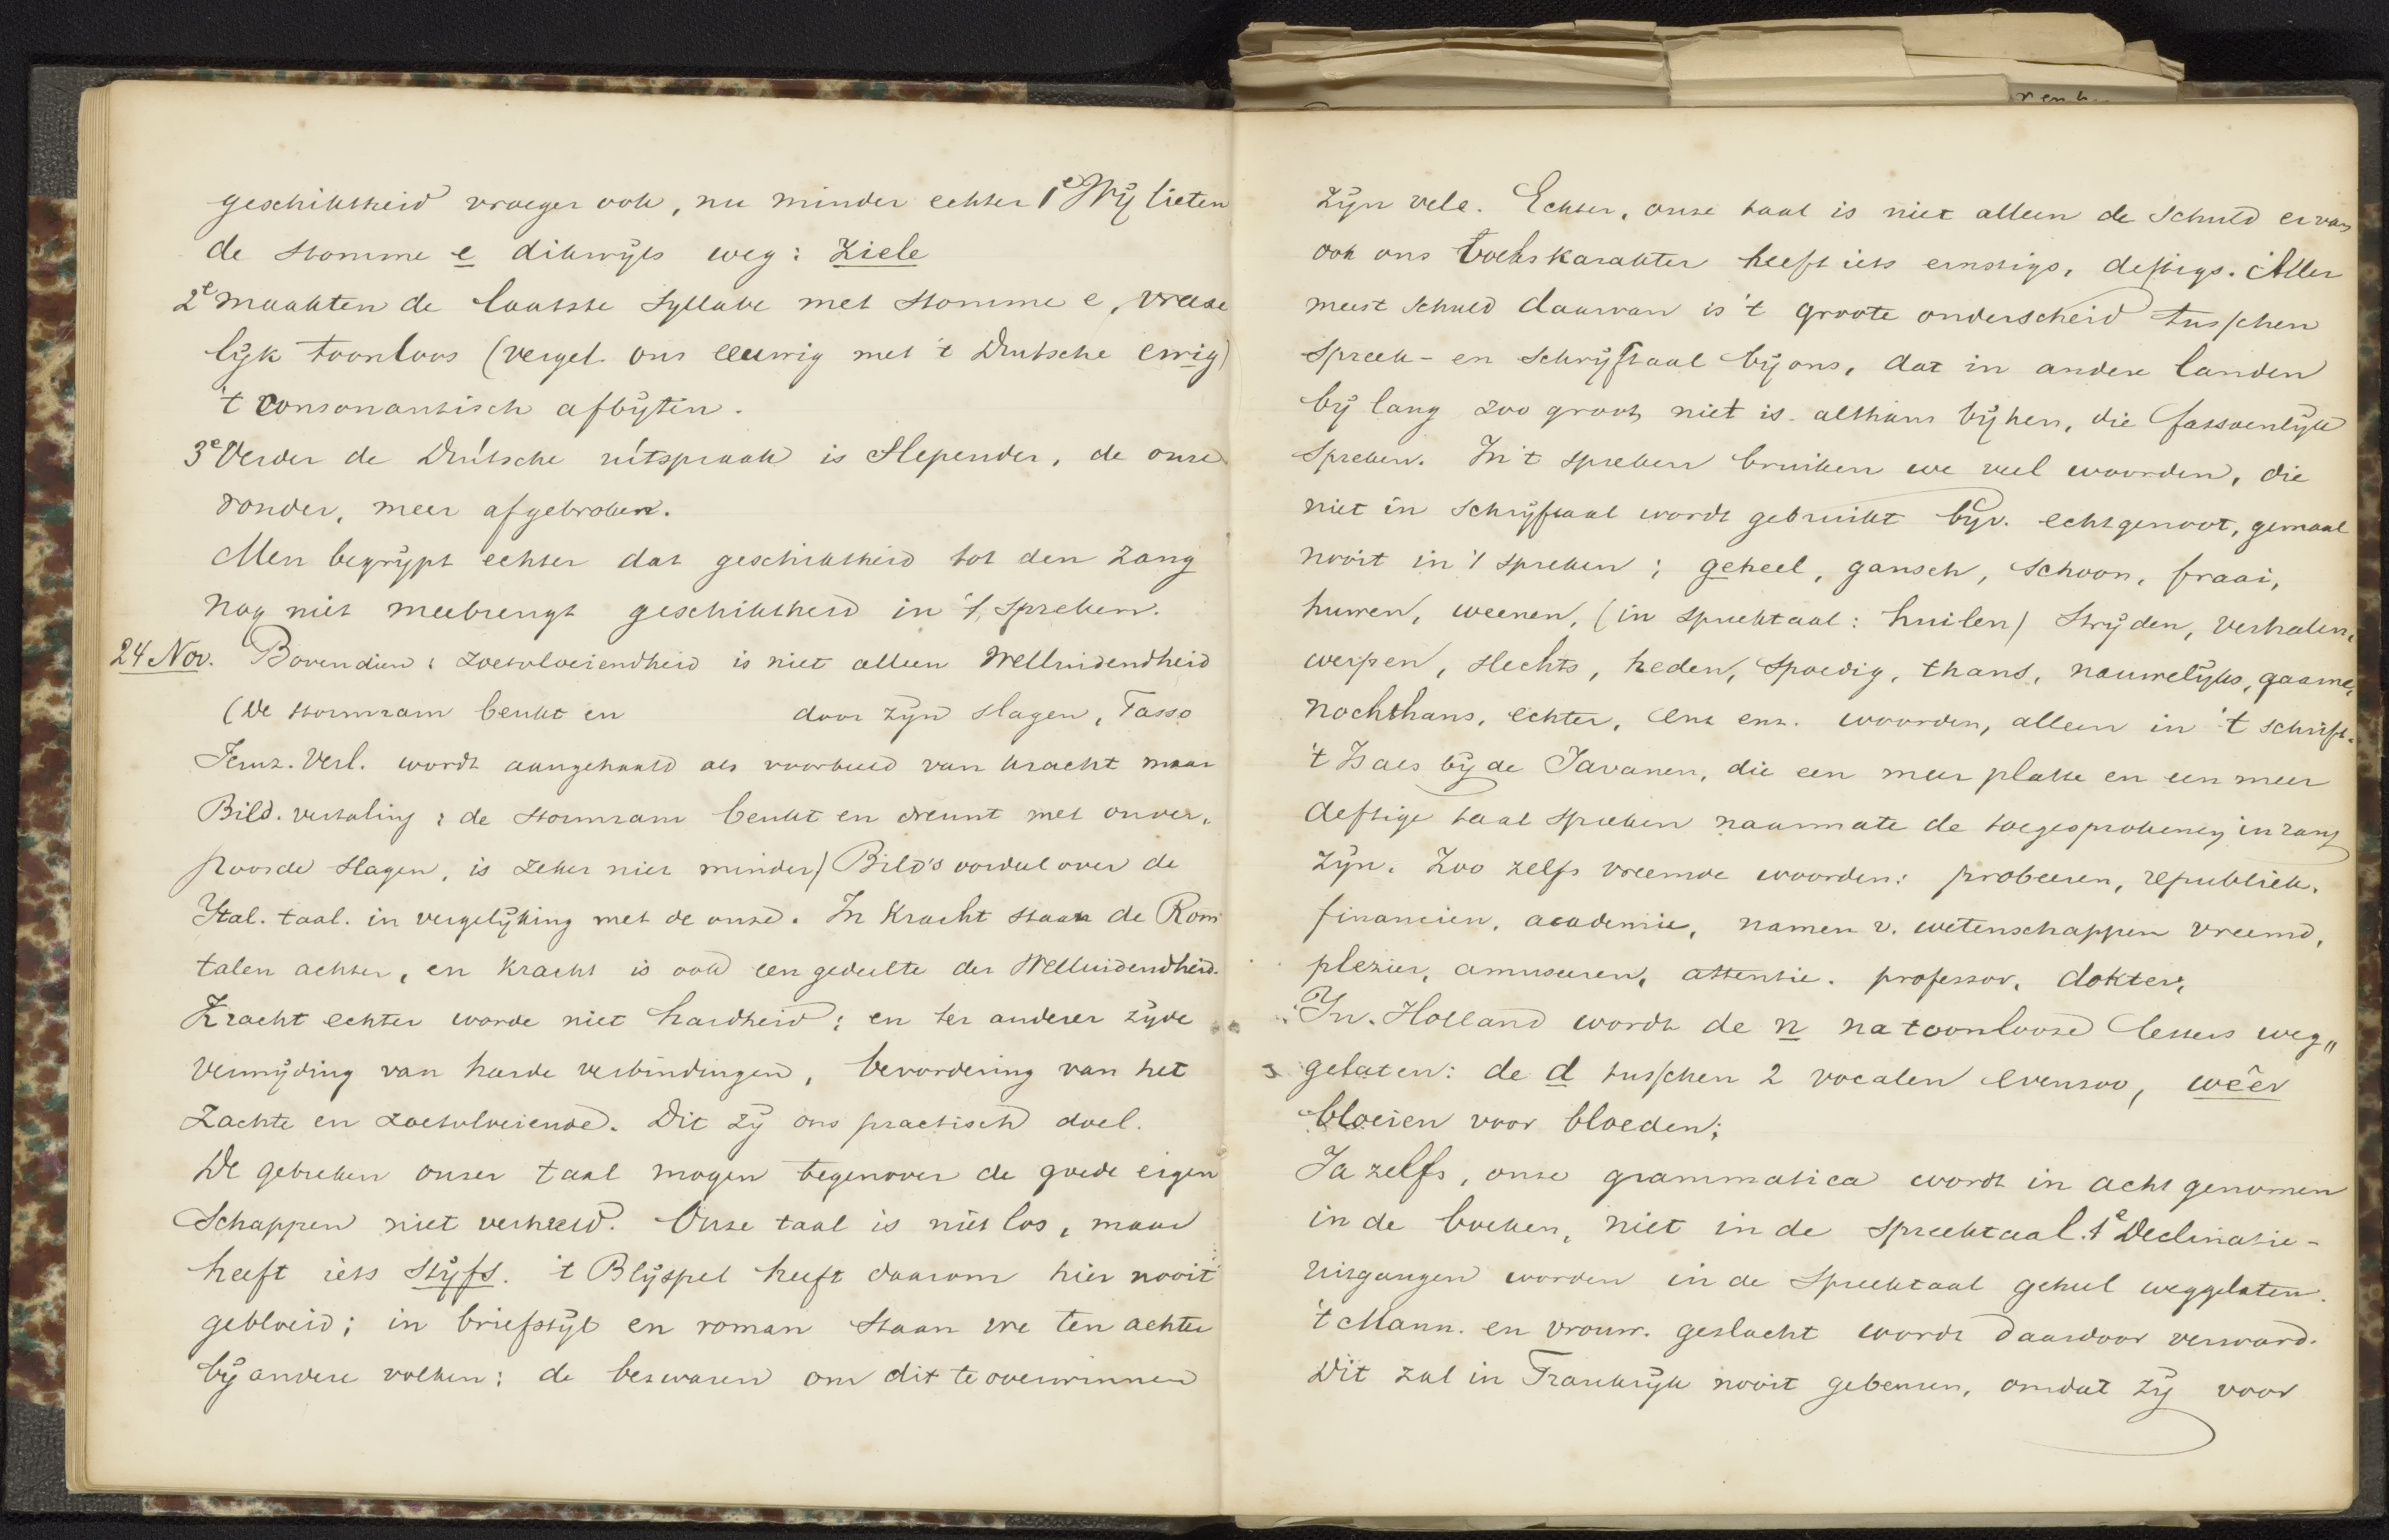 geschiktheid vroeger ook, nu minder echter 1e Wij lieten
de stomme e dikwijls weg: ziele
2e maakten de laatste syllabe met stomme e, vreese
lijk toonloos (vergel. ons eeuwig met 't Duitsche ewig)
't consonantisch afbijten.
3e Verder de Duitsche uitspraak is slepender, de onze
ronder, meer afgebroken.
Men begrijpt echter dat geschiktheid tot den zang
nog niet meebrengt geschiktheid in 't spreken.
24 Nov. Bovendien: zoetvloeiendheid is niet alleen Welluidendheid
(De stormram beukt en door zijn slagen, Tasso
Jeruz. Verl. wordt aangehaald als voorbeeld van kracht maar
Bild. vertaling: de stormram beukt en dreunt met onver,
poosde slagen, is zeker niet minder) Bild's oordeel over de
Ital. taal. in vergelijking met de onze. In kracht staan de Rom
talen achter, en kracht is ook een gedeelte der Welluidendheid.
Kracht echter worde niet hardheid; en ter anderer zijde
vermijding van harde verbindingen, bevordering van het
zachte en zoetvloeiende. Dit zij ons practisch doel.
De gebreken onzer taal mogen tegenover de goede eigen
schappen niet verheeld. Onze taal is niet los, maar
heeft iets stijfs. 't Blijspel heeft daarom hier nooit
gebloeid; in briefstijl en roman staan we ten achter
bij andere volken; de bezwaren om dit te overwinnen
zijn vele. Echter, onze taal is niet alleen de schuld ervan
ook ons volkskarakter heeft iets ernstigs, deftigs. Aller
meest schuld daarvan is 't groote onderscheid tusschen
spreek- en schrijftaal bij ons, dat in andere landen
bij lang zoo groot niet is. althans bij hen, die fatsoenlijk
spreken. In 't spreken bruiken we veel woorden, die
niet in schrijftaal wordt gebruikt bijv. echtgenoot, gemaal
nooit in 't spreken; geheel, gansch, schoon, fraai,
huwen, weenen, (in spreektaal: huilen) strijden, verhalen,
werpen, slechts, heden, spoedig, thans, nauwelijks, gaarne,
nochthans, echter, enz enz. woorden, alleen in 't schrift.
't Is als bij de Javanen, die een meer platte en een meer
deftige taal spreken naarmate de toegesprokenen in rang
zijn. Zoo zelfs vreemde woorden: probeeren, republiek,
financien, academie, namen v. wetenschappen vreemd,
plezier, amuseeren, attentie. professor, dokter,
In Holland wordt de n na toonlooze letters weg„
gelaten: de d tusschen 2 vocalen evenzoo, wêer
bloeien voor bloeden;
Ja zelfs, onze grammatica wordt in acht genomen
in de boeken, niet in de spreektaal. 1e Declinatie-
uitgangen worden in de spreektaal geheel weggelaten.
't Mann. en vrouw. geslacht wordt daardoor verward.
Dit zal in Frankrijk nooit gebeuren, omdat zij voor